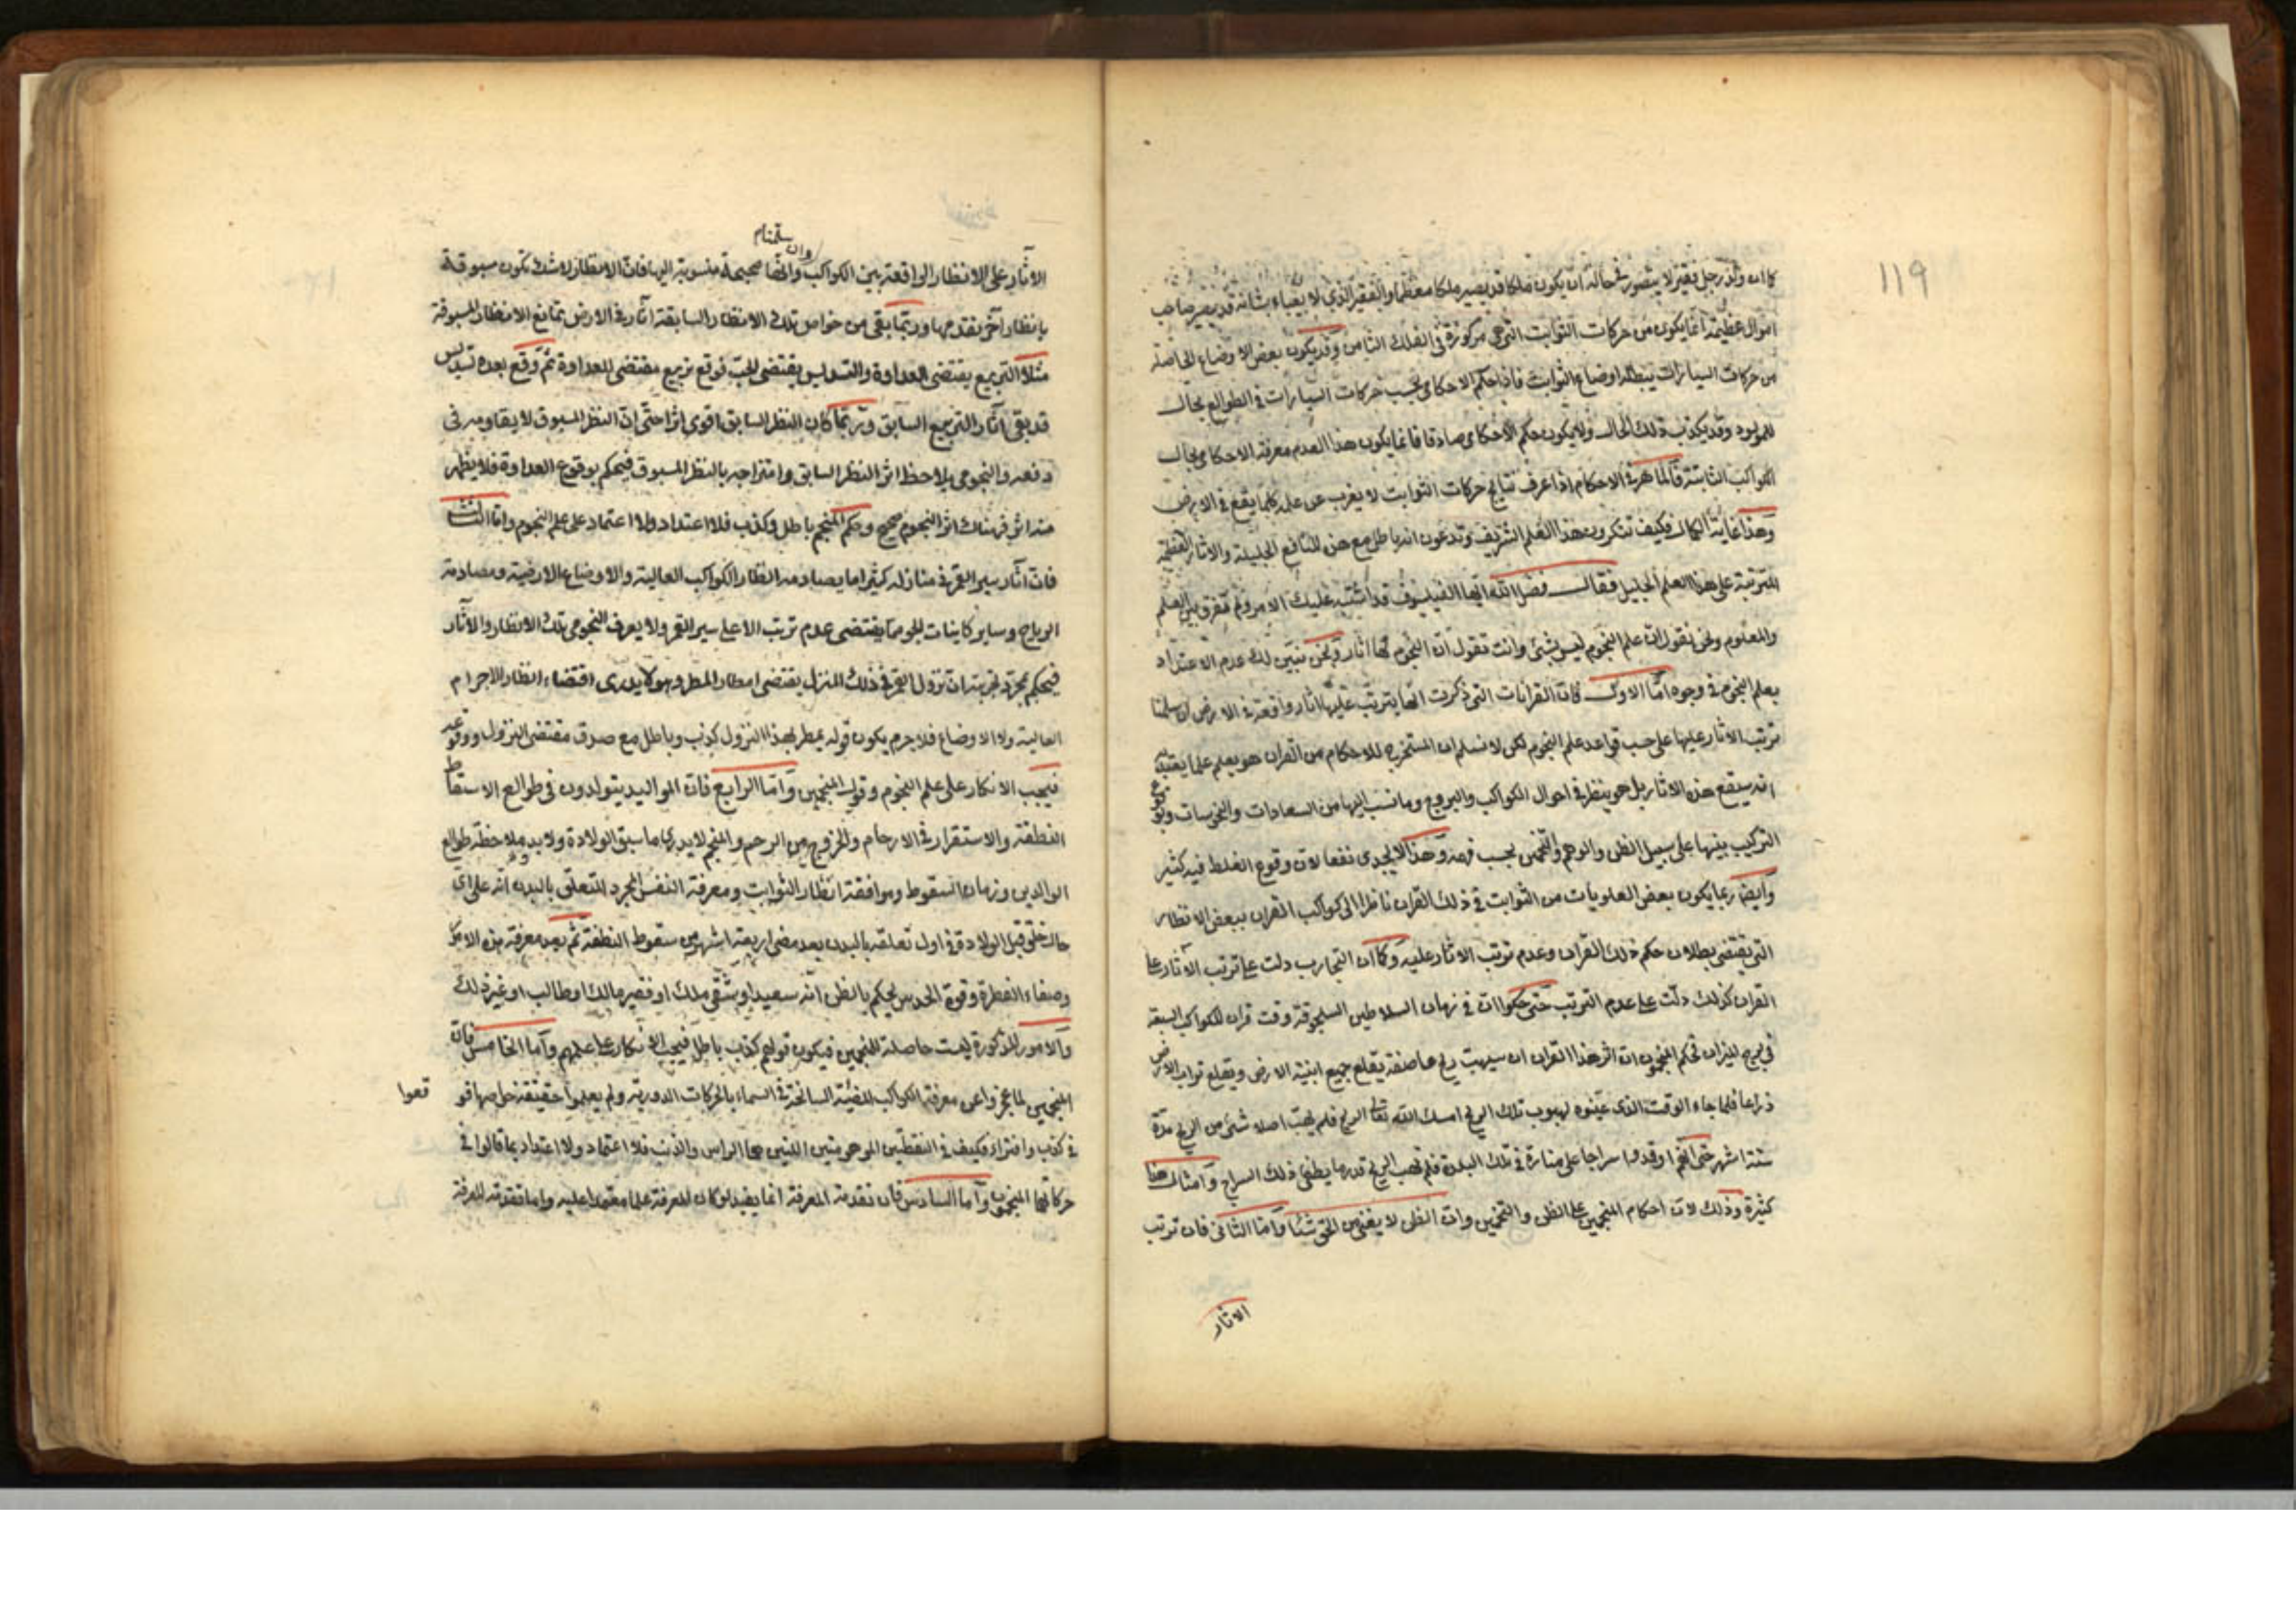 119
كما ان ولد رجل فقير لا يتصور في حاله ان يكون ملكا قد يصير ملكا معظما والفقير الذي لا يعباء بشانه قد يصير صاحب
اموال عظيمة انما يكون من حركات الثوابت التي هي مركوزة في الفلك الثامن وقد يكون بعض الاوضاع الحاصلة
من حركات السيارات يبطله اوضاع الثوابت فاذا حكم الاحكامي بحسب حركات السيارات في الطوالع بحال
المولود وقد يكذب ذلك الحال ولا يكون حكم الاحكامي صادقا فانما يكون هذا لعدم معرفة الاحكامي بحال
الكواكب الثابتة فالماهر في الاحكام اذا عرف نتايج حركات الثوابت لا يغرب عن علمه كلما يقع في الارض
وهذا غاية الكمال فكيف تنكرون هذا العلم الشريف وتدعون انه باطل مع هذه المنافع الجليلة والاثار العظيمة
المترتبة على هذا العلم الجليل فقال فضل الله ايها الفيلسوف قد اشتبه عليك الامر ولم تفرق بين العلم
والمعلوم ونحن نقول ان علم النجوم ليس بشئ وانت تقول ان النجوم لها اثار ونحن نبين لك عدم الاعتداد
بعلم النجوم في وجوه اما الاول فان القرانات التي ذكرت انها يترتب عليها اثار واقعة في الارض ان سلمنا
ترتب الاثار عليها على حسب قواعد علم النجوم لكن لا نسلم ان المستخرج للاحكام من القران هو يعلم علما يعتد به
انه سيقع هذه الاثار بل هو ينظر في احوال الكواكب والبروج وما نسب اليها من السعادات والنحوسات ويوقع
التركيب بينها على سبيل الظن والوهم والتخمين بحسب فهمه وهذا لا يجدى نفعا لان وقوع الغلط فيه كثير
وايضا ربما يكون بعض العلويات من الثوابت في ذلك القران ناظرا الى كواكب القران ببعض الانظار
التي يقتضى بطلان حكم ذلك القران وعدم ترتب الاثار عليه وكما ان التجارب دلت على ترتب الآثار على
القران كذلك دلت على عدم الترتب حتى حكوا ان في زمان السلاطين السلجوقة وقت قران الكواكب السبعة
في برج الميزان حكم المنجمون ان اثر هذا القران ان سيهب ريح عاصفة يقلع جميع ابنية الارض ويقلع تراب الارض
ذراعا فلما جاء الوقت الذي عينوه لهبوب تلك الريح امسك الله تعالى الريح فلم يهب اصلا شئ من الريح مدة
ستة اشهر حتى انهم اوقدوا سراجا على منارة في تلك البلدة فلم تهب الريح قدر ما يطفي ذلك السراج وامثال هذا
كثيرة وذلك لان احكام المنجمين على الظن والتخمين وان الظن لا يغني من الحق شيئا واما الثاني فان ترتب
الاثار
وان سلمنا م
الآثار على الانظار الواقعة بين الكواكب وانها صحيحة منسوبة اليها فان الانظار لا شك تكون مسبوقة
بانظار آخر تقدمها وربما بقى من خواص تلك الانظار السابقة آثار في الارض تمانع الانظار المسبوقة
مثلا التربيع يقتضى العداوة والتسديس يقتضى المحبة فوقع تربيع مقتضى للعداوة ثم وقع بعده تسديس
قد بقى آثار التربيع السابق وربما كان النظر السابق اقوى اثرا حتى ان النظر المسبوق لا يقاومه في
دفعه والنجومى يلاحظ اثر النظر السابق وامتزاجه بالنظر المسبوق فيحكم بوقوع العداوة فلا يظهر
منه اثر فهناك اثر النجوم صحيح وحكم المنجم باطل وكذب فلا اعتداد ولا اعتماد على علم النجوم واما الثالث
فان آثار سير القمر في منازله كثيرا ما يصادمه انظار الكواكب العالية والاوضاع الارضية ومصادمة
الرياح وساير كاينات الجو مما يقتضى عدم ترتب الاعلى سير القمر ولا يعرف النجومى تلك الانظار والآثار
فيحكم بمجرد تجربته ان نزول القمر في ذلك المنزل يقتضى امطار المطر وهو لا يدرى اقتضاء انظار الاجرام
العالية ولا الاوضاع فلا جرم يكون قوله يمطر بهذا النزول كذب وباطل مع صدق مقتضى النزول ووقوعه
فيجب الانكار على علم النجوم وقول المنجمين واما الرابع فان المواليد يتولدون في طوالع الاسقاط
النطفة والاستقرار في الارحام والخروج من الرحم والمنجم لا يدرى ما سبق الولادة ولا بد من ملاحظة طوالع
الوالدين وزمان السقوط وموافقة انظار الثوابت ومعرفة النفس المجرد المتعلق بالبدن انه على اى
حال خلق قبل الولادة في اول تعلقه بالبدن بعد مضى اربعة اشهر من سقوط النطفة ثم بعد معرفة هذه الامور
وصفاء الفطرة وقوة الحدس يحكم بالظن انه سعيد او شقى ملك او فقير مالك او طالب او غير ذلك
والامور المذكورة ليست حاصلة للمنجمين فيكون قولهم كذب باطل فيجب الانكار على علمهم واما الخامس فان
المنجمين لما عجزوا عن معرفة الكواكب المضيئة السانحة في السماء بالحركات الدورية ولم يعلموا حقيقة خواصها فو
قعوا
في كذب وافتراء فكيف في النقطتين الموهومتين اللتين هما الراس والذنب فلا اعتماد ولا اعتداد بما قالوا في
حركاتها المنجمون واما السادس فان تقدمة المعرفة انما يفيد لو كان المعرفة علما معتمدا عليه واما تقدمة المعرفة